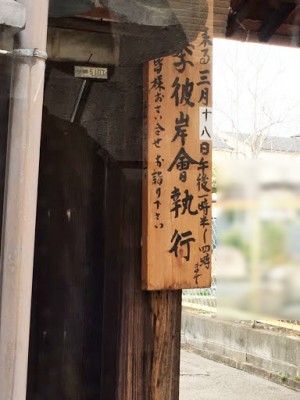 来る三月十八日午後一時半〜四時まで
季彼岸會執行
皆様おさそい合せ お詣り下さい